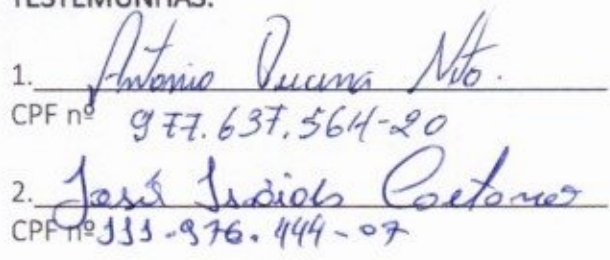 TESTEMUNHAS:
1. Antonio Nto.
CPF nº 977.637.564-20
2. José Caetano
CPF nº 111-976.444-07